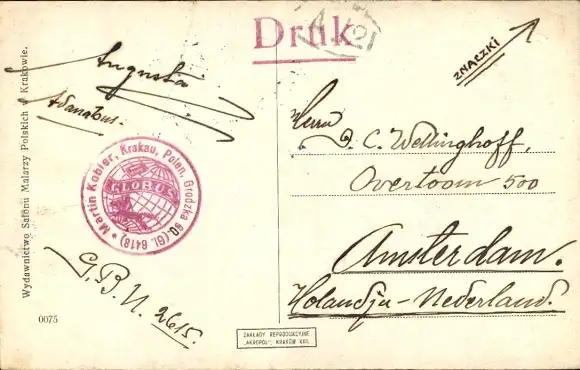 Wydawnictwo Salonu Malarzy Polskich w Krakowie.
0075
Druk
ZNACZKI
Augusta
Martin Kobler, Krakau, Polen, Grodzka 60, (Gl. 6418)
GLOBUS
G.B.U. 2615.
Herrn
D. C. Wellinghoff,
Overtoom 500
Amsterdam.
Holandja-Nederland.
ZAKŁADY REPRODUKCYJNE
„AKROPOL", KRAKÓW XXII.